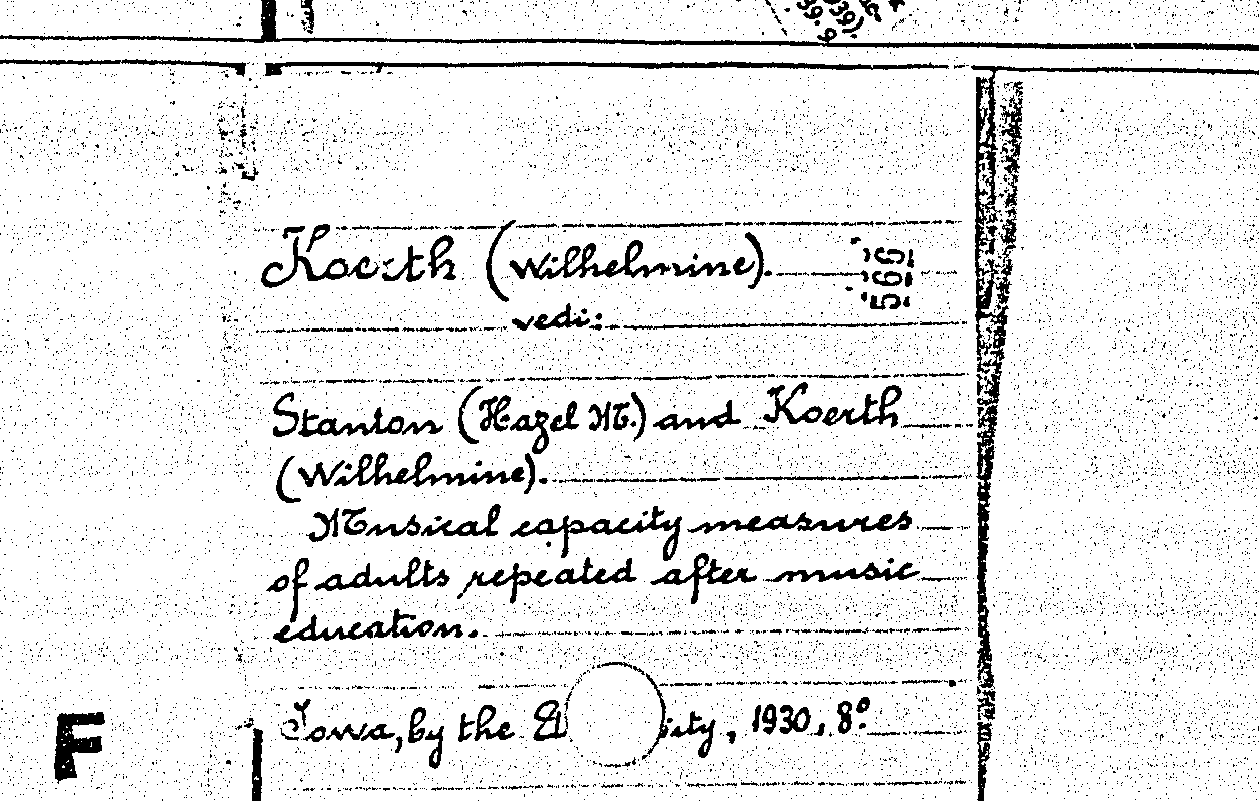 39.9
Koerth (Wilhelmine).
566
vedi:
Stanton (Hazel M.) and Koerth
(Wilhelmine).
Musical capacity measures
of adults repeated after music
education.
Iowa, by the ity, 1930, 8º
F